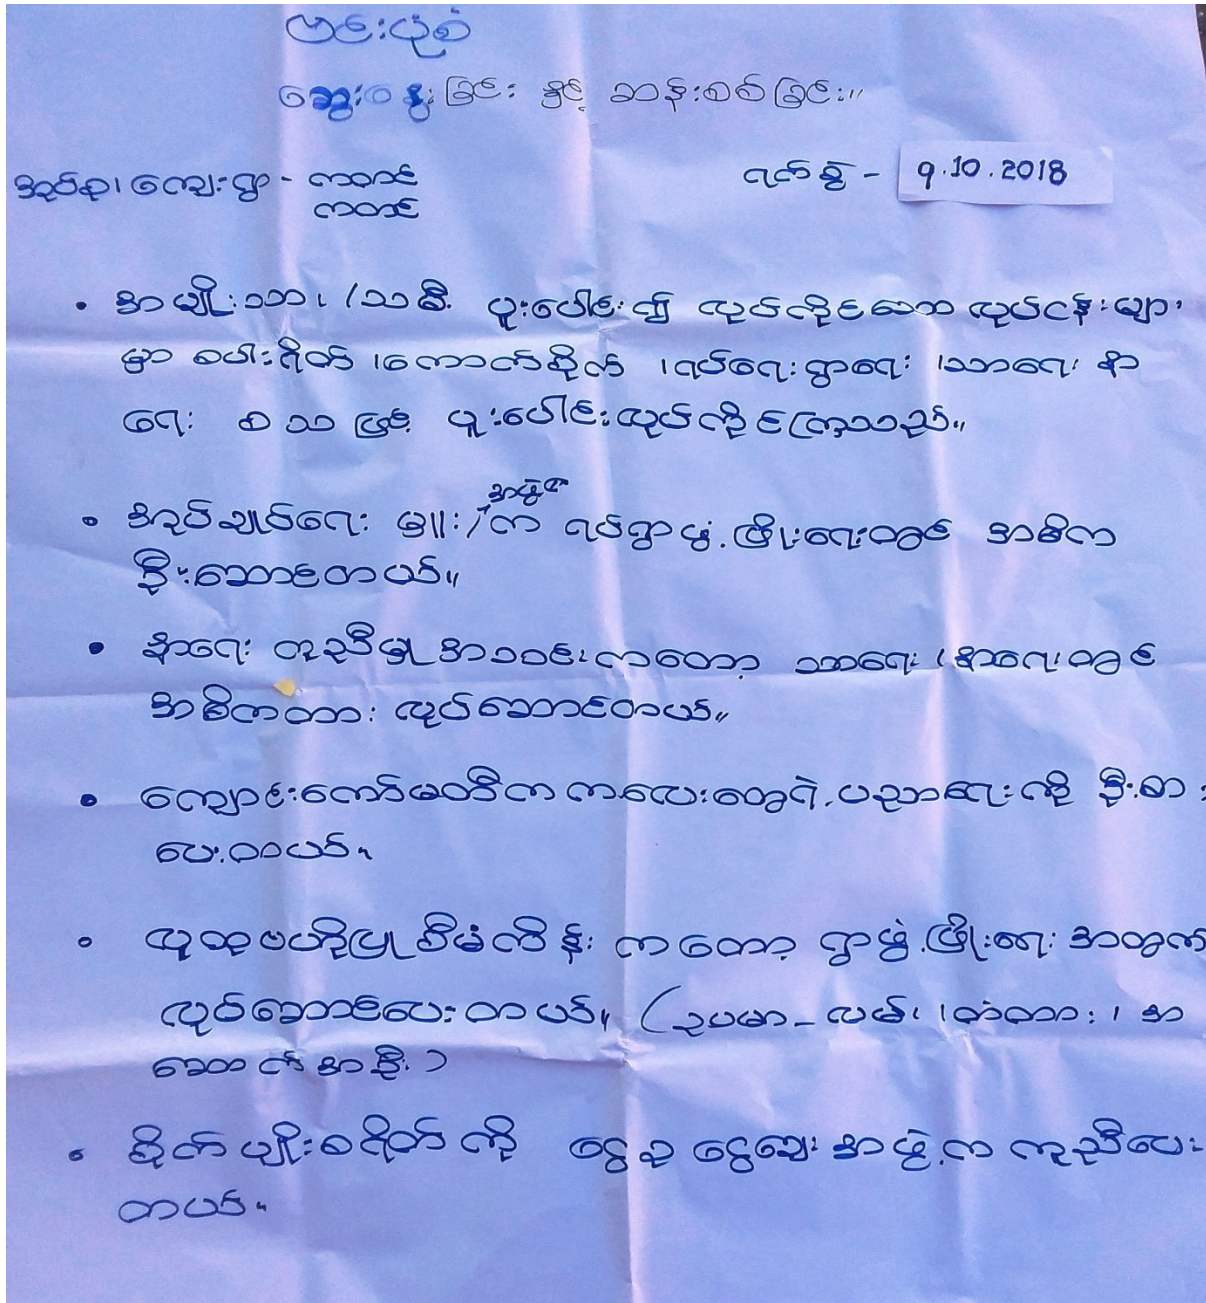 ဗင်းပုံစံ
ဆွေးနွေးခြင်း နှင့် ဆန်းစစ်ခြင်း။
အုပ်စု၊ ကျေးရွာ - ကတင်
ကတင်
ရက်စွဲ - 9.10.2018
• အမျိုးသား၊ /သမီး ပူးပေါင်း၍ လုပ်ကိုင်သော လုပ်ငန်းများ
မှာ စပါးရိတ် ၊ကောက်စိုက် ၊ရပ်ရေးရွာရေး ၊သာရေး နာ
ရေး စသဖြင့် ပူးပေါင်းလုပ်ကိုင်ကြသည်။
• အုပ်ချုပ်ရေး မှူး/အဖွဲ့က ရပ်ရွာဖွံ့ဖြိုးရေးတွင် အဓိက
ဦးဆောင်တယ်။
• နာရေး ကူညီမှု အသင်းကတော့ သာရေး ၊နာရေးတွင်
အဓိကထား လုပ်ဆောင်တယ်။
• ကျောင်းကော်မတီက ကလေးတွေရဲ့ပညာရေးကို ဦးစား
ပေးတယ်။
• လူထုဗဟိုပြုစီမံကိန်း ကတော့ ရွာဖွံ့ဖြိုးရေး အတွက်
လုပ်ဆောင်ပေးတယ်။ (ဥပမာ - လမ်း ၊တံတား ၊ အ
ဆောက်အဦး)
• စိုက်ပျိုးစရိတ်ကို ငွေစုငွေချေးအဖွဲ့က ကူညီပေး
တယ်။